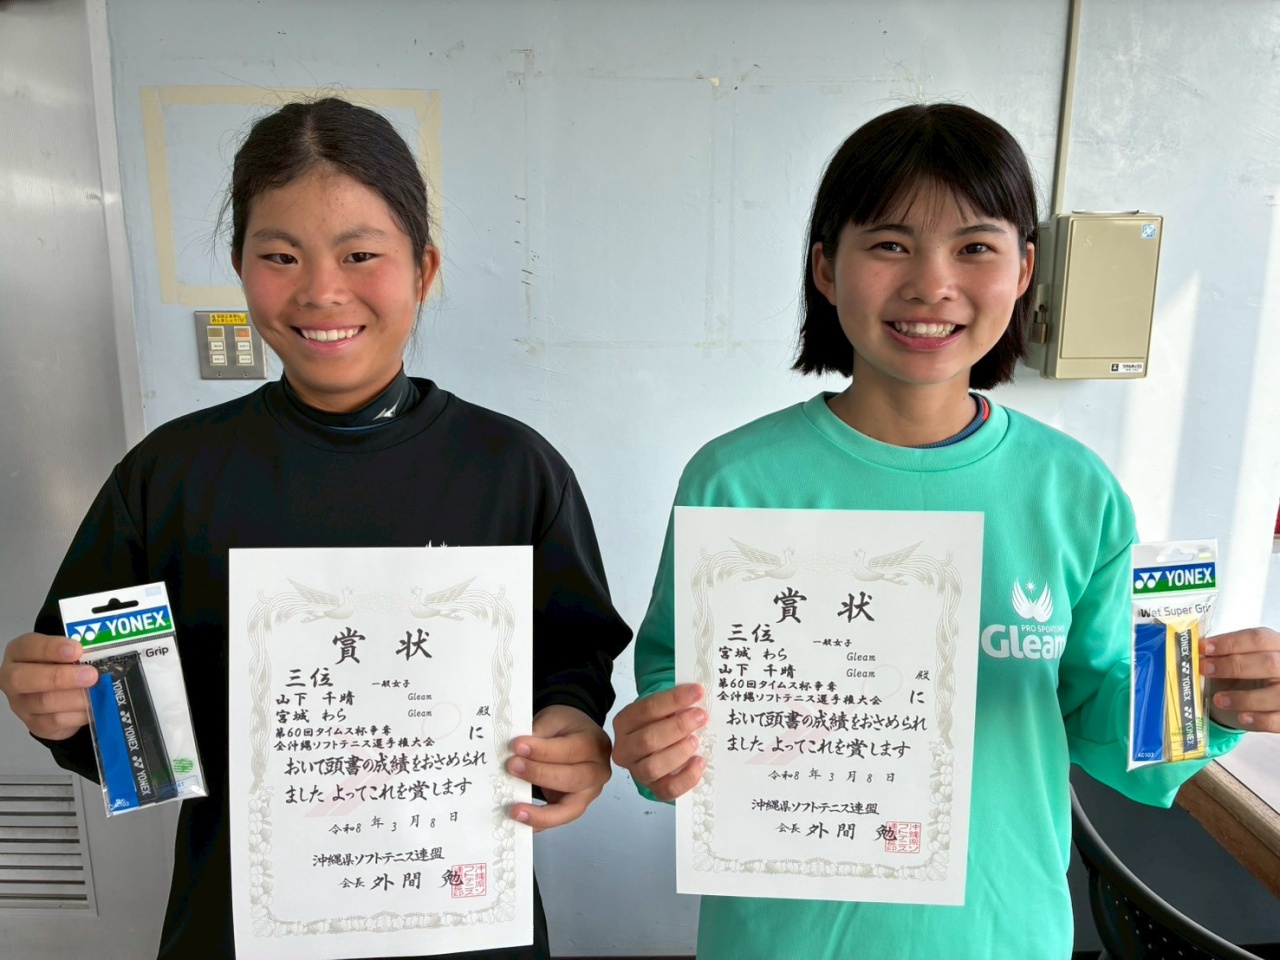 YONEX
Wet Super Grip
YONEX
賞状
三位 一般女子
山下 千晴 Gleam
宮城 わら Gleam 殿
第60回タイムス杯争奪
全沖縄ソフトテニス選手権大会 に
おいて頭書の成績をおさめられ
ました よってこれを賞します
令和8年3月8日
沖縄県ソフトテニス連盟
会長 外間 勉
賞状
三位 一般女子
宮城 わら Gleam
山下 千晴 Gleam 殿
第60回タイムス杯争奪
全沖縄ソフトテニス選手権大会 に
おいて頭書の成績をおさめられ
ました よってこれを賞します
令和8年3月8日
沖縄県ソフトテニス連盟
会長 外間 勉
PRO SPORTS
Gleam
YONEX
Wet Super Grip
YONEX
AC103